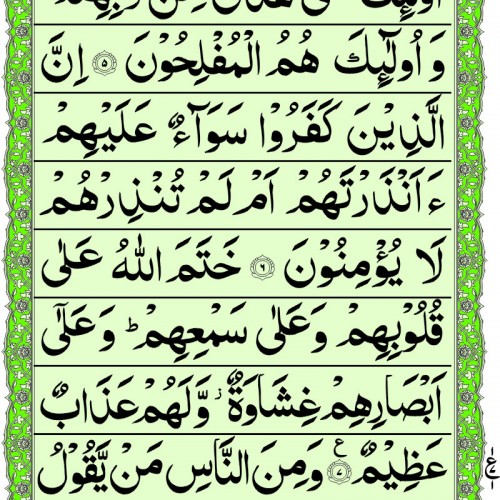 اُولٰٓئِكَ عَلٰى هُدًى مِّنْ رَّبِّهِمْ
وَ اُولٰٓئِكَ هُمُ الْمُفْلِحُوْنَ ۝۵ اِنَّ
الَّذِيْنَ كَفَرُوْا سَوَآءٌ عَلَيْهِمْ
ءَاَنْذَرْتَهُمْ اَمْ لَمْ تُنْذِرْهُمْ
لَا يُؤْمِنُوْنَ ۝۶ خَتَمَ اللّٰهُ عَلٰى
قُلُوْبِهِمْ وَعَلٰى سَمْعِهِمْ ؕ وَعَلٰٓى
اَبْصَارِهِمْ غِشَاوَةٌ ز وَّلَهُمْ عَذَابٌ
عَظِيْمٌ ع ۝۷ وَمِنَ النَّاسِ مَنْ يَّقُوْلُ